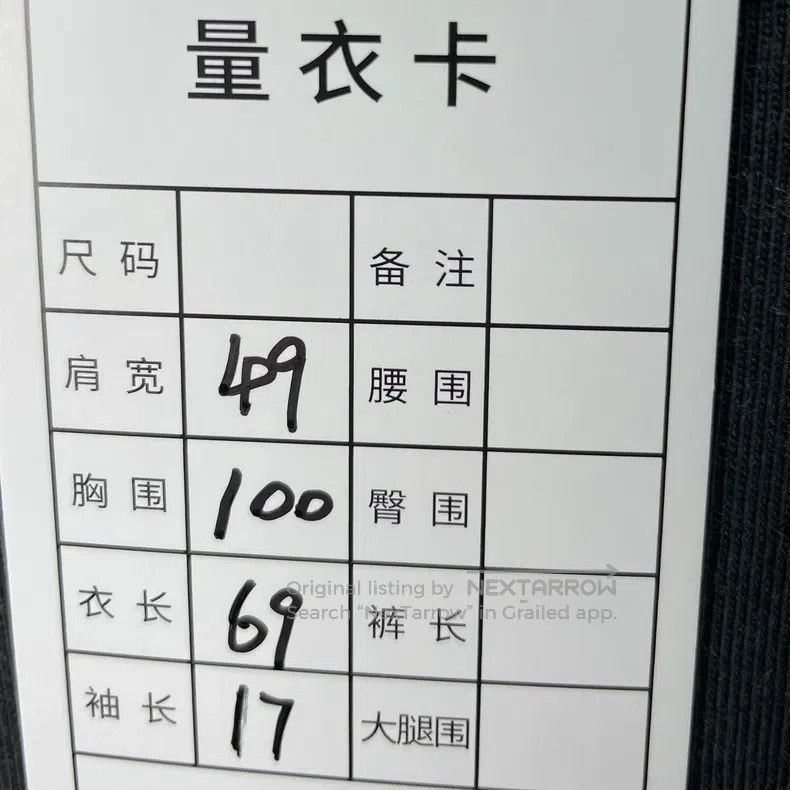 量衣卡
尺码 备注
肩宽 49 腰围
胸围 100 臀围
衣长 69 裤长
Original listing by NEXTARROW
Search "NexTarrow" in Grailed app.
袖长 17 大腿围